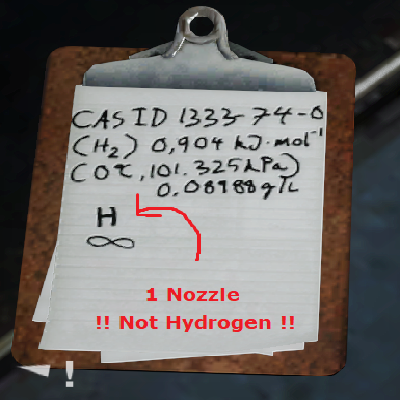 CAS ID 1333-74-0
(H₂) 0,904 kJ·mol⁻¹
(0℃, 101.325kPa)
0.08988g/L
H
∞
1 Nozzle
!! Not Hydrogen !!
!